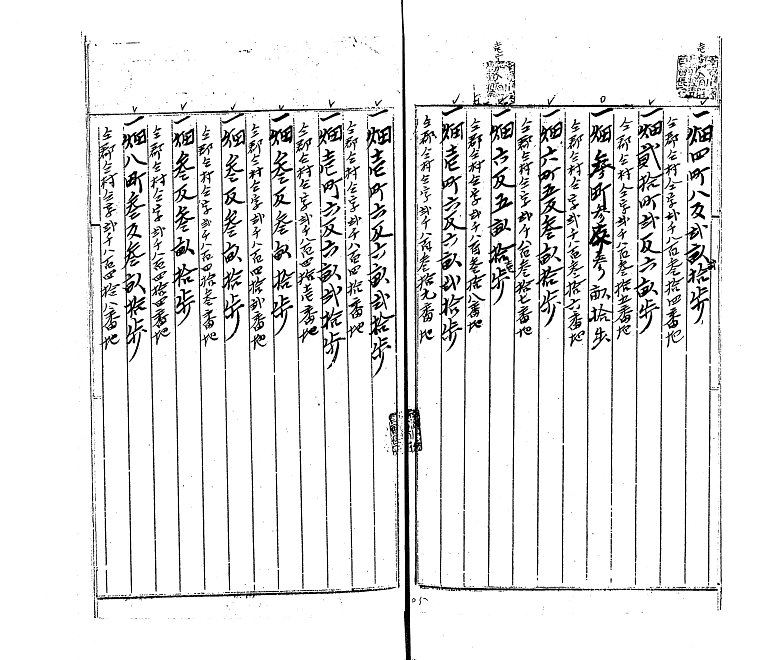 一畑四町八反弐畝拾歩
仝郡仝村仝字弐千八百参拾四番地
一畑貳拾町弐反六畝歩
仝郡仝村仝字弐千八百参拾五番地
一畑参町
参畝拾歩
仝郡仝村仝字弐千八百参拾六番地
一畑六町五反参畝拾歩
仝郡仝村仝字弐千八百参拾七番地
一畑六反五畝拾歩
仝郡仝村仝字弐千八百参拾八番地
一畑壱町六反六畝弐拾歩
仝郡仝村仝字弐千八百参拾九番地
一畑壱町六反六畝弐拾歩
仝郡仝村仝字弐千八百四拾番地
一畑壱町六反六畝弐拾歩
仝郡仝村仝字弐千八百四拾壱番地
一畑参反参畝拾歩
仝郡仝村仝字弐千八百四拾弐番地
一畑参反参畝拾歩
仝郡仝村仝字弐千八百四拾参番地
一畑参反参畝拾歩
仝郡仝村仝字弐千八百四拾四番地
一畑八町参反参畝拾歩
仝郡仝村仝字弐千八百四拾八番地